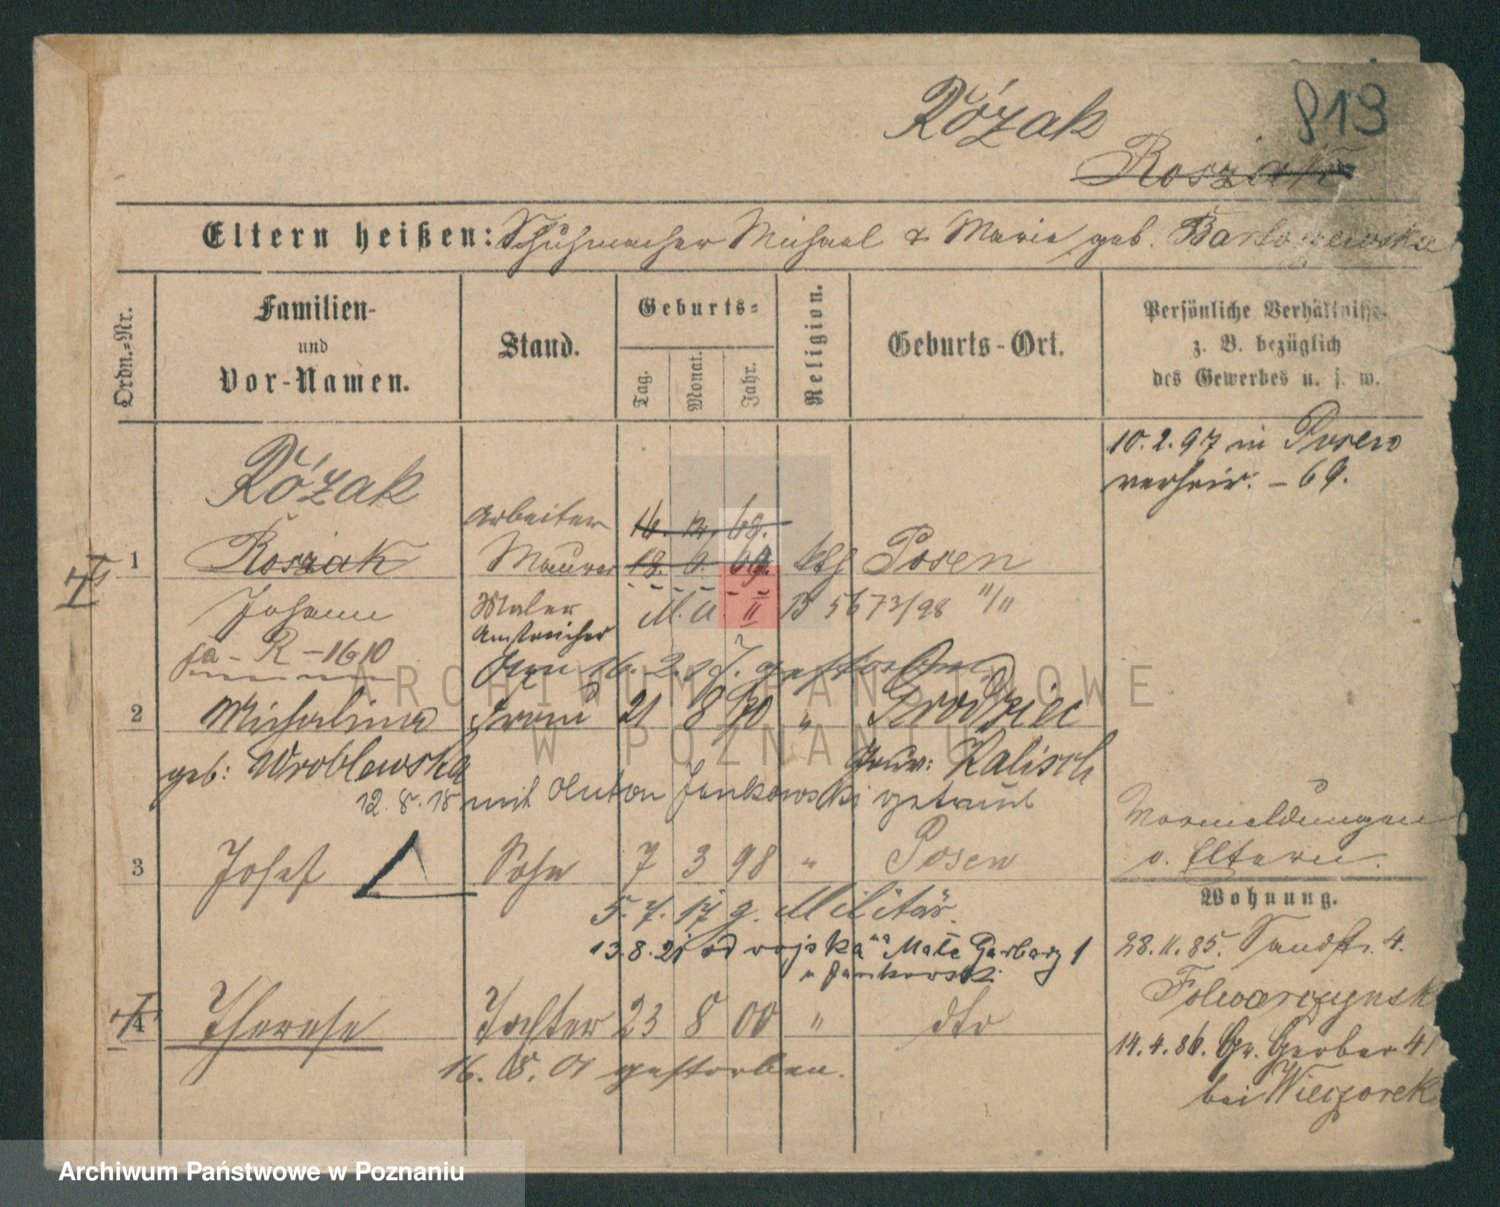 813
Rózak
Rosziak
Eltern heißen: Schuhmacher Michael & Marie geb. Bartoszewska
Ordn.-Nr.
Familien-
und
Vor-Namen.
Stand.
Geburts-
Tag.
Monat.
Jahr.
Religion.
Geburts-Ort.
Persönliche Verhältnisse.
z. B. bezüglich
des Gewerbes u. s. w.
10. 2. 97 in Posen
verheir. - 69.
Rózak
Arbeiter 16. 12. 69.
1 Rosziak Maurer 18. 6. 69. kth Posen
Johann Maler M. U. II B 5673/98 "/"
Anstreicher
fa - R - 1610
16. 2. 17. gestorben
2 Michalina Frau 21 8 70 " Grodziec
geb: Wroblewska Gouv: Kalisch
12. 8. 18 mit Anton Jankowski getraut
Vormeldungen
v. Eltern.
3 Josef Sohn 7 3 98 " Posen
Wohnung.
5. 7. 17 z. Militär.
13. 8. 21 od wojska na Małe Garbary 1
u Jankowski
28. 11. 85. Sandstr. 4.
Folwarczynsk
4 Therese Tochter 23 8 00 " dto
14. 4. 86. Gr. Gerber 41
bei Wieczorek
16. 8. 01 gestorben.
ARCHIWUM PAŃSTWOWE
W POZNANIU
Archiwum Państwowe w Poznaniu